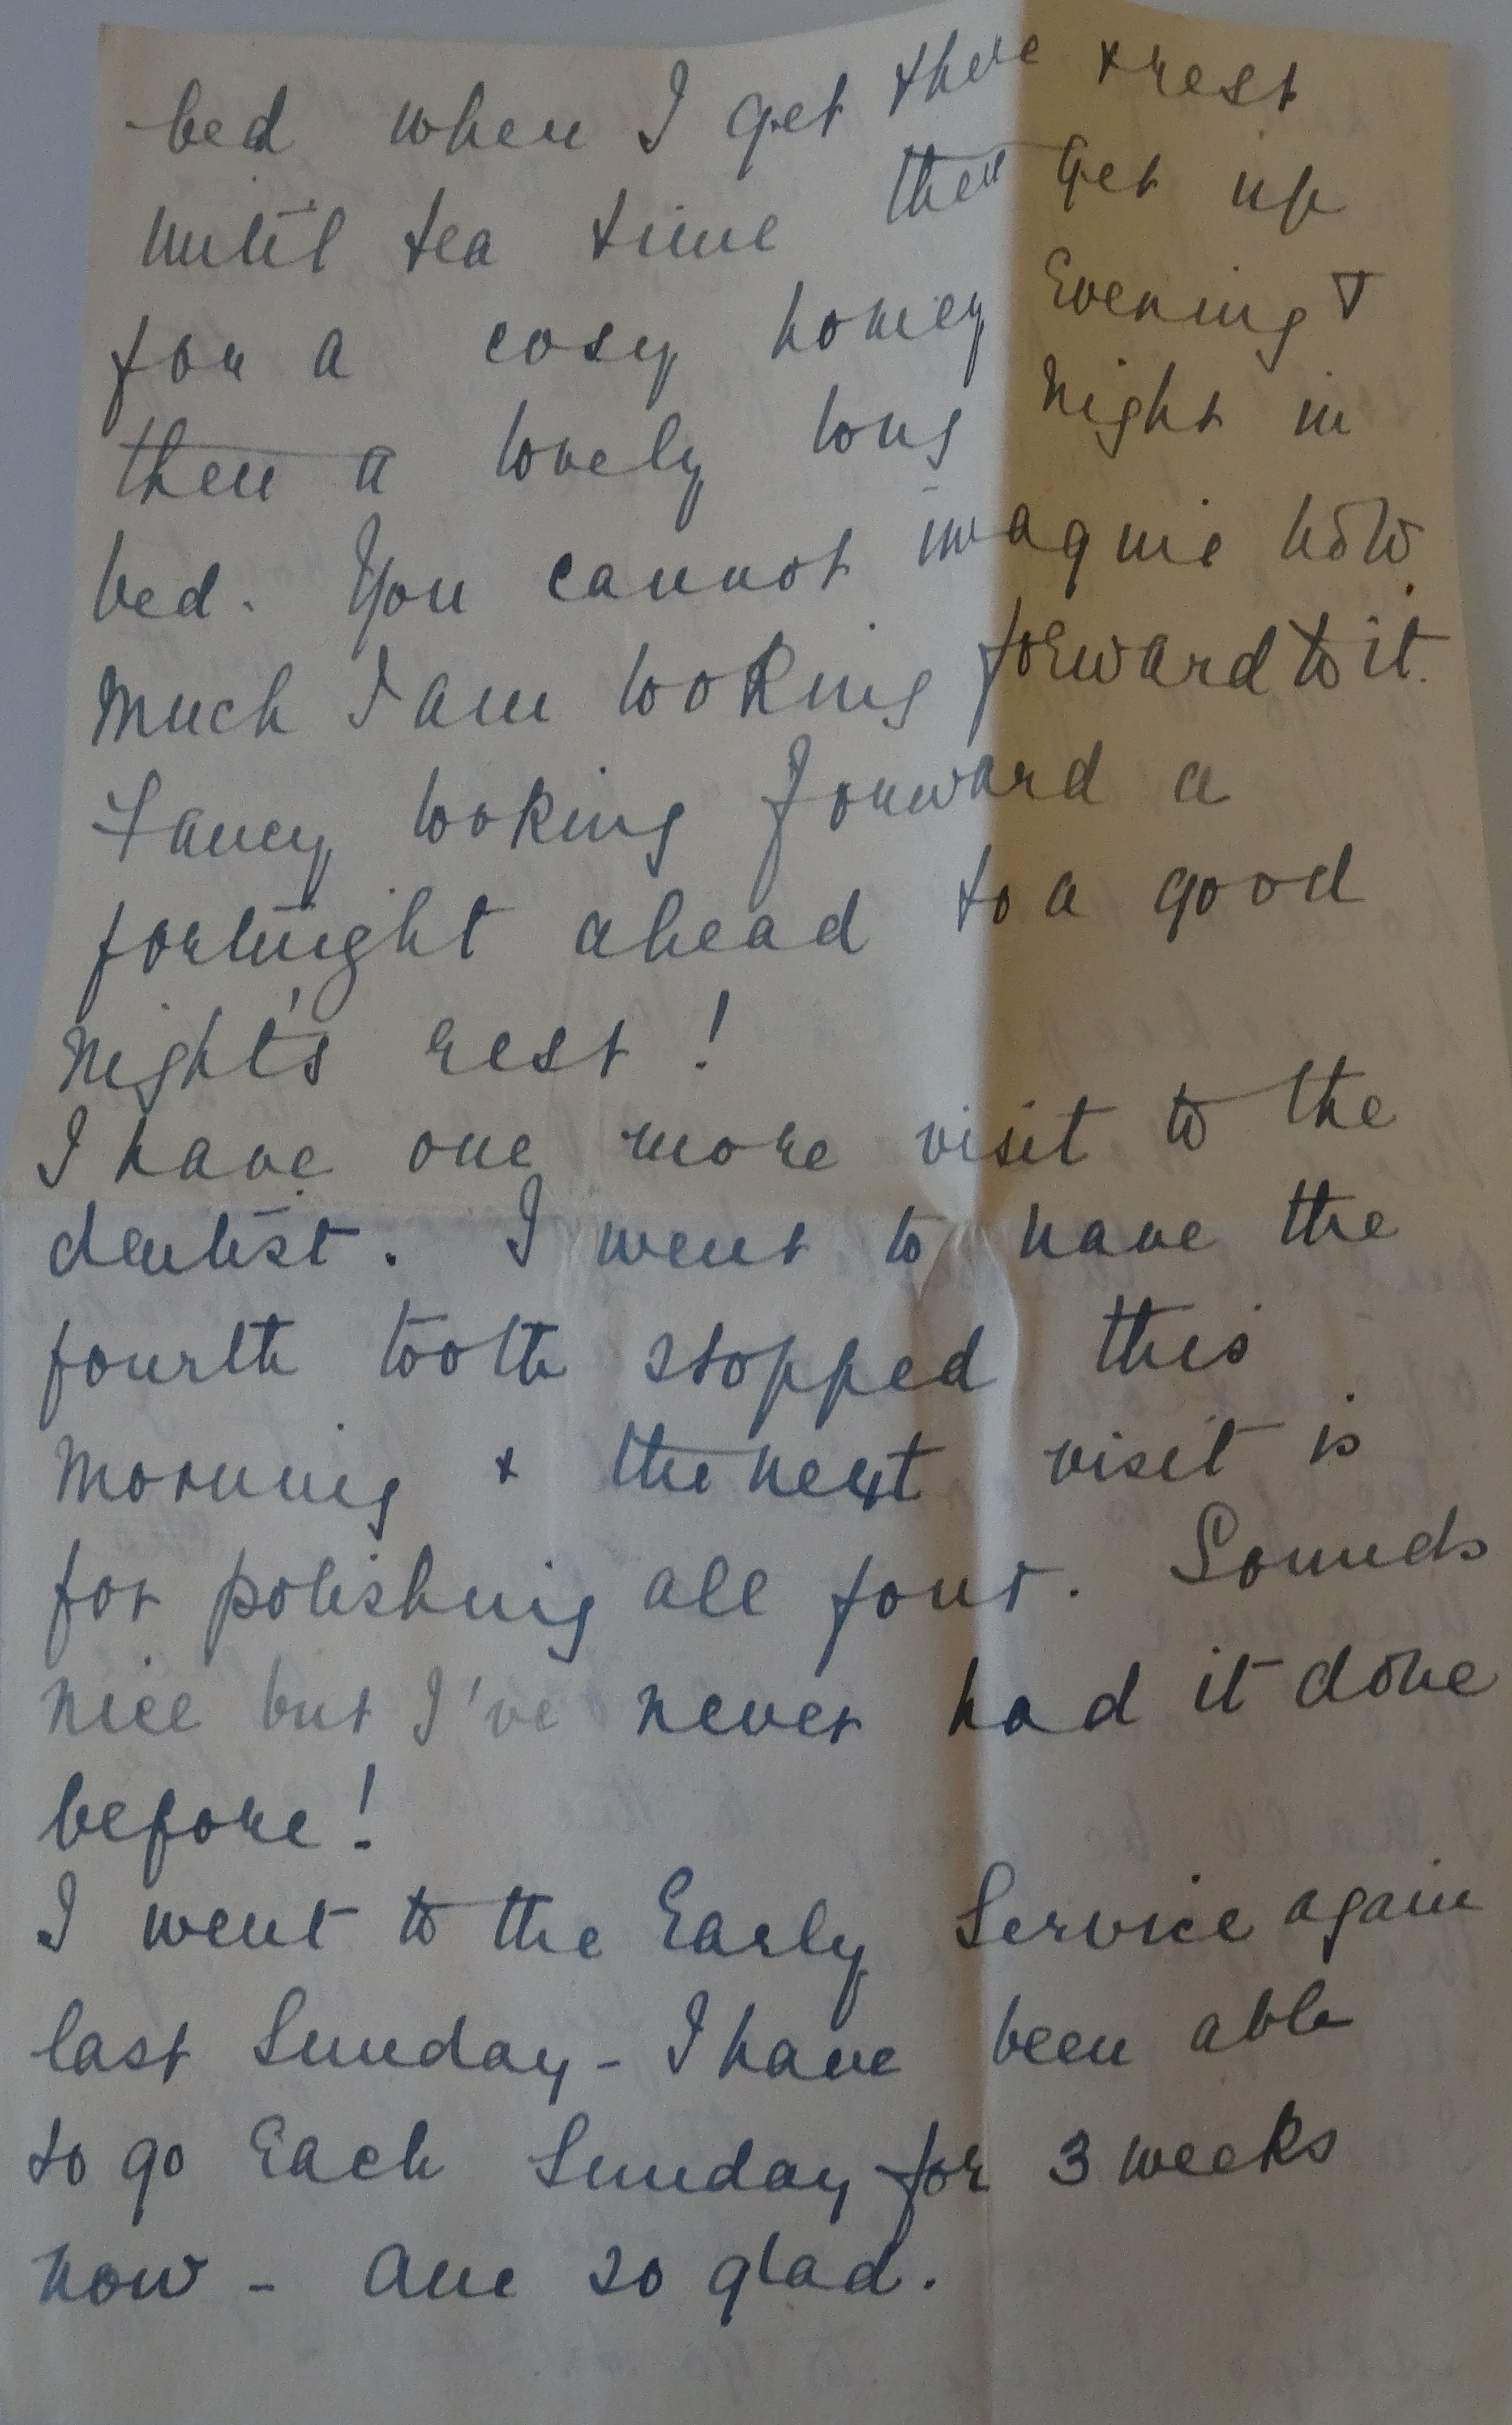 bed when I get there & rest
until tea time then get up
for a cosy homey Evening &
then a lovely long night in
bed. You cannot imagine how
much I am looking forward to it.
Fancy looking forward a
fortnight ahead to a good
night's rest!
I have one more visit to the
dentist. I went to have the
fourth tooth stopped this
morning & the next visit is
for polishing all four. Sounds
nice but I've never had it done
before!
I went to the Early Service again
last Sunday - I have been able
to go Each Sunday for 3 weeks
now - am so glad.